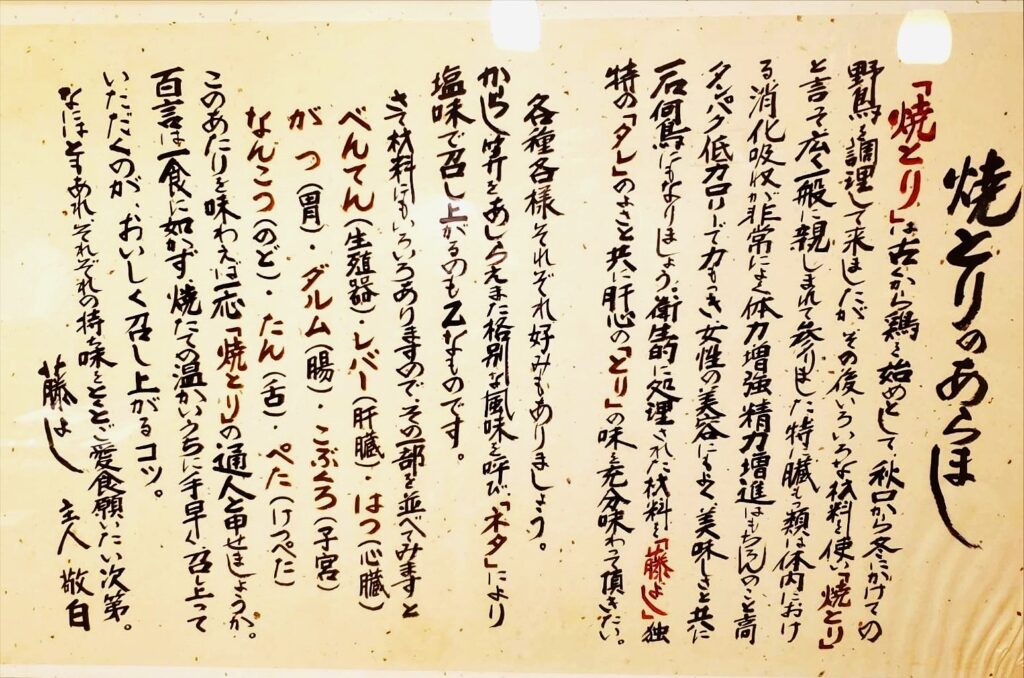 焼とりのあらまし
「焼とり」は古くから鶏を始めとして、秋口から冬にかけての
野鳥を調理して来ましたが、その後いろいろな材料を使い「焼とり」
と言って広く一般に親しまれて参りました。特に臓もつ類は体内におけ
る、消化吸収が非常によく体力増強精力増進はもちろんのこと高
タンパク低カロリーで力もつき女性の美容にもよく、美味しさと共に
一石何鳥にもなりましょう。衛生的に処理された材料を「藤よし」独
特の「タレ」のよさと共に肝心の「とり」の味を充分味わって頂きたい。
各種各様それぞれ好みもありましょう。
からし等をあしらえまた格別な風味を呼び、「ネタ」により
塩味で召し上がるのも乙なものです。
さて材料にもいろいろありますので、その一部を並べてみますと
べんてん(生殖器)・レバー(肝臓)・はつ(心臓)
がつ(胃)・ダルム(腸)・こぶくろ(子宮)
なんこつ(のど)・たん(舌)・ぺた(けつぺた)
このあたりを味わえば一応「焼とり」の通人と申せましょうか。
百言は一食に如かず、焼たての温かいうちに手早く召し上って
いただくのが、おいしく召し上がるコツ。
なにはともあれ、それぞれの特な味をとくとご愛食願いたい次第。
藤よし 主人 敬白